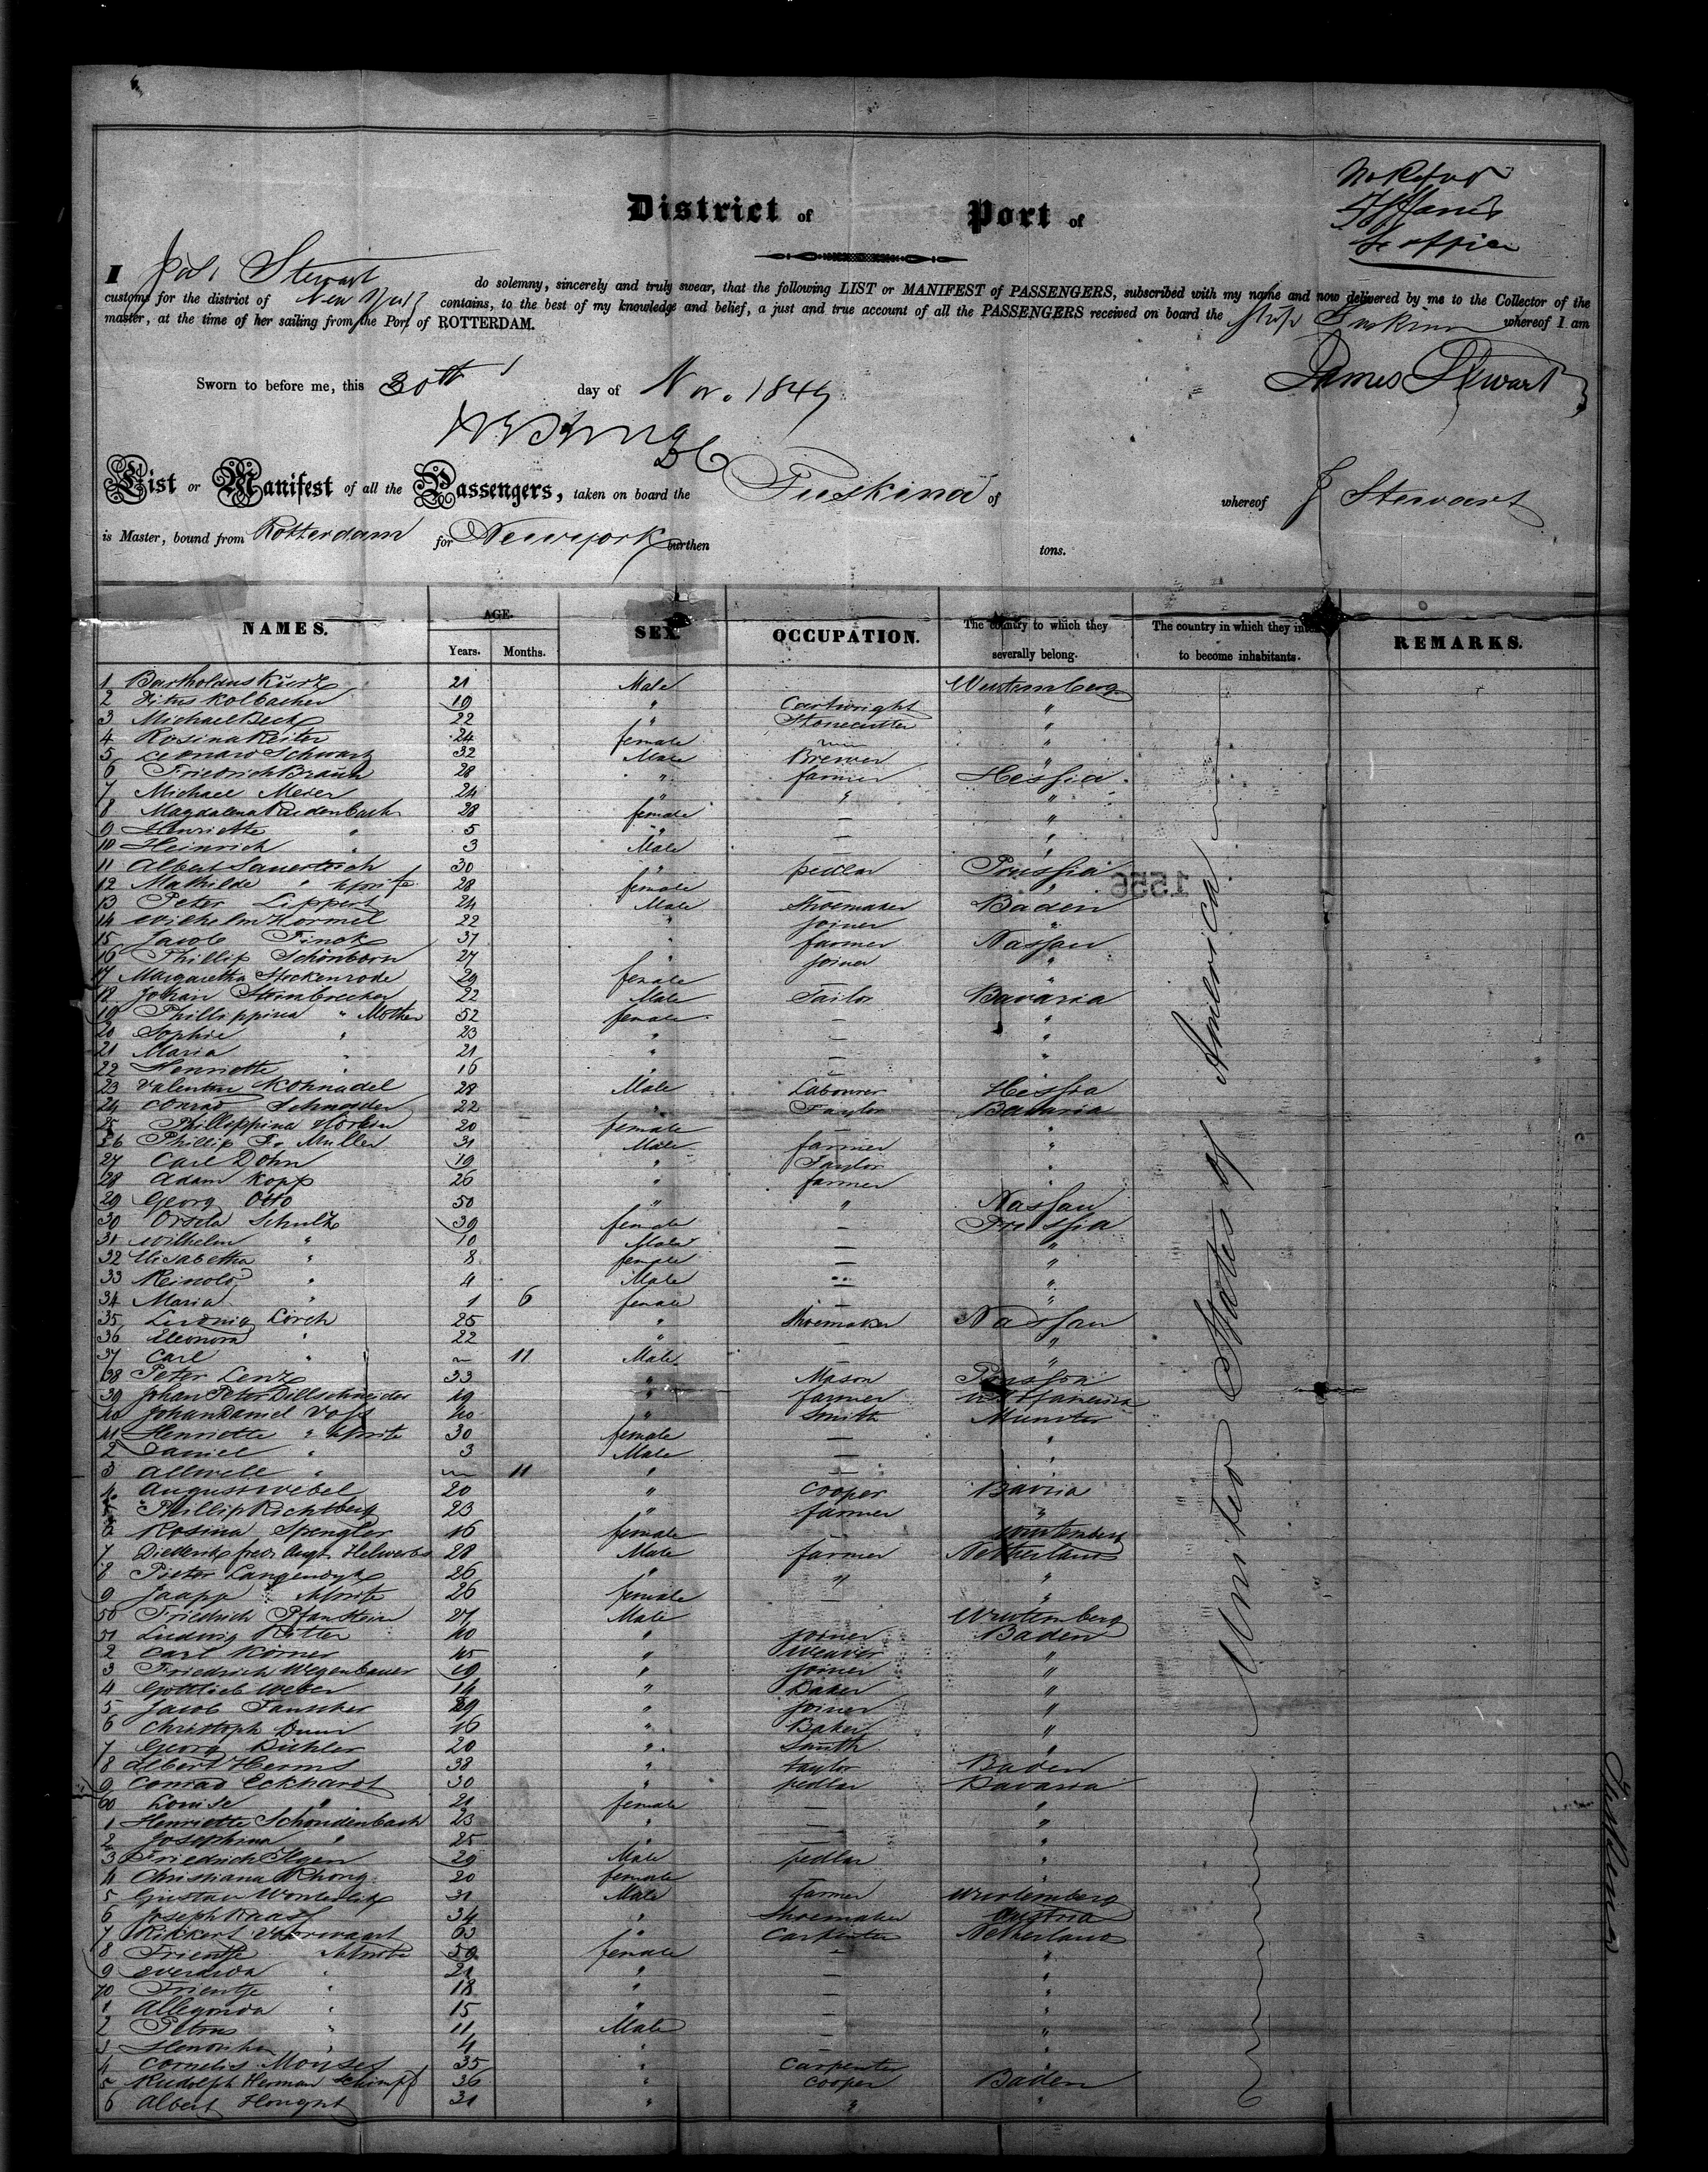 District of Port of
I Jas. Stewart do solemny, sincerely and truly swear, that the following LIST or MANIFEST of PASSENGERS, subscribed with my name and now delivered by me to the Collector of the
customs for the district of New York contains, to the best of my knowledge and belief, a just and true account of all the PASSENGERS received on board the Ship Tuskina whereof I am
master, at the time of her sailing from the Port of ROTTERDAM.
James Stewart
Sworn to before me, this 30th day of Nov. 1849
List or Manifest of all the Passengers, taken on board the Tuskina of whereof J Stewart
is Master, bound from Rotterdam for Newyork burthen tons.
NAMES. AGE. Years. Months. SEX. OCCUPATION. The country to which they severally belong. The country in which they inten to become inhabitants. REMARKS.
United States of America
1556
1 Bartholaus Kürz 21 Male Wurtemberg
2 Titus Kolbacher 19 " Cartwright "
3 Michael Beck 22 " Stonecutter "
4 Rosina Reiter 24 female "
5 Leonard Schwarz 32 Male Brewer "
6 Friedrich Braun 28 " farmer Hessia
7 Michael Meier 24 " " "
8 Magdalena Rudenbach 28 female — "
9 Henriette " 5 " — "
10 Heinrich " 3 Male — "
11 Albert Sauerbrich 30 " pedlar Prussia
12 Mathilde " wife 28 female — "
13 Peter Lippert 24 Male Shoemaker Baden
14 Wilhelm Hormel 22 " Joiner "
15 Jacob Finck 37 " farmer Nassau
16 Phillip Schönborn 27 " Joiner "
17 Margaretha Stockenrode 29 female "
18 Johan Steinbrecher 22 Male Tailor Bavaria
19 Phillippina " Mother 52 female — "
20 Sophie " 23 " — "
21 Maria " 21 " — "
22 Henriette " 16 " — "
23 Valentin Kohnadel 28 Male Labourer Hessia
24 Conrad Schneider 22 " Taylor Bavaria
25 Phillippina 20 female — "
26 Phillip F. Muller 31 Male farmer "
27 Carl Dohn 19 " Taylor "
28 Adam Kopp 26 " farmer "
29 Georg Otto 50 " " Nassau
30 Orsela Schultz 39 female — Prussia
31 Wilhelm " 10 Male — "
32 Elisabetha " 8 female — "
33 Reinold " 4 Male "
34 Maria " 1 6 female — "
35 Ludwig Lorch 25 " Shoemaker Nassau
36 Eleonora " 22 " — "
37 Carl " 11 Male — "
38 Peter Lenz 33 " Mason
39 Johan Peter Dillschneider 19 " farmer
40 Johan Daniel Voss 40 " Smith Munster
41 Henriette " Wife 30 female — "
2 Daniel " 3 Male — "
3 " 11 " —
4 August Webel 20 " Cooper Baviria
5 Phillip Richtberg 23 " farmer "
6 Rosina Spengler 16 female — Wurtemberg
7 Diederik fred. Augt. 28 Male farmer Netherland
8 Pieter Langendyk 26 " " "
9 Jaapje " Wife 26 female — "
50 Friedrich Pfanstein 27 Male Wurtemberg
51 Ludwig Ritter 40 " Joiner Baden
2 Carl Körner 45 " Weaver "
3 Friedrich Wegenbauer 19 " Joiner "
4 Gottlieb Weber 14 " Baker "
5 Jacob Tauscher 29 " Joiner "
6 Christoph 16 " Baker "
7 Georg Bichler 20 " Smith "
8 Albert Herms 38 " taylor Baden
9 Conrad Eckhardt 30 " pedlar Bavaria
60 Louise " 21 female — "
1 Henriette Schondenbach 23 " — "
2 Josephina " 25 " — "
3 Friedrich Ilgen 29 Male pedlar "
4 Christiana 20 female
5 Gustav 31 Male farmer Wurtemberg
6 Joseph Raass 34 " Shoemaker Austria
7 Rikkert Voorwaart 63 " Carpenter Netherland
8 Trientje Wife 50 female — "
9 Everdina " 21 " — "
70 Trientje " 18 " — "
1 Allegonda " 15 " — "
2 Petrus " 11 Male — "
3 " 4 " — "
4 Cornelis 35 " Carpenter "
5 Rudolph Herman Schimpf 36 " Cooper Baden
6 Albert 31 " " "